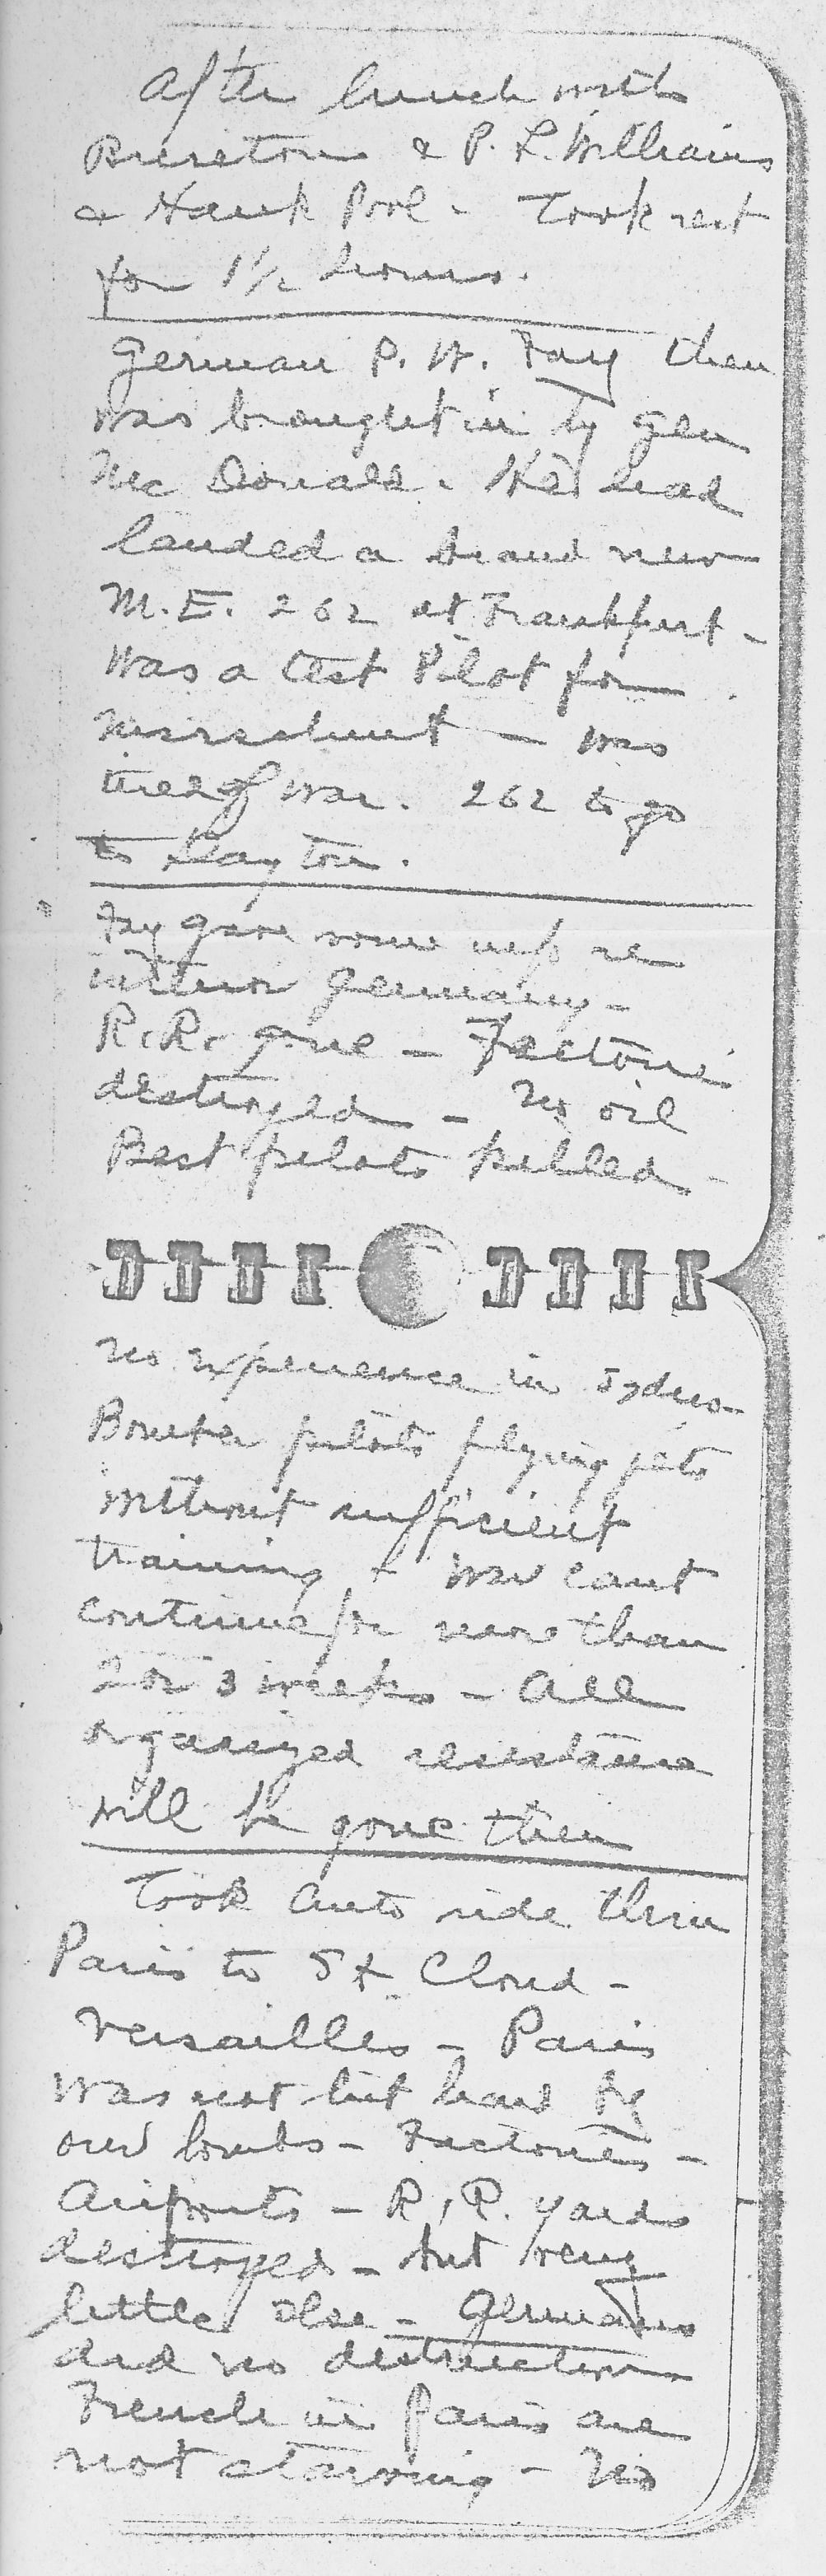 After lunch with
Brereton & P. L. Williams
& Hank Pool - Took rest
for 1 1/2 hours.
German P. W. Fay then
was brought in by Gen
McDonald. He had
landed a brand new
M.E. 262 at Frankfurt -
Was a test Pilot for
Messerschmitt - was
tired of war. 262 to go
to Dayton.
Fay gave some info re
interior Germany -
R.R. gone - Factories
destroyed - No oil
Best pilots killed -
no experience in
Bomber pilots flying jets
without sufficient
training + War cant
continue for more than
2 or 3 weeks - All
organized resistance
will be gone then
Took auto ride thru
Paris to St Cloud -
Versailles - Paris
was not hit hard by
our bombs - Factories -
Airports - R.R. yards
destroyed - but very
little else - Germans
did no destruction
French in Paris are
not starving - No